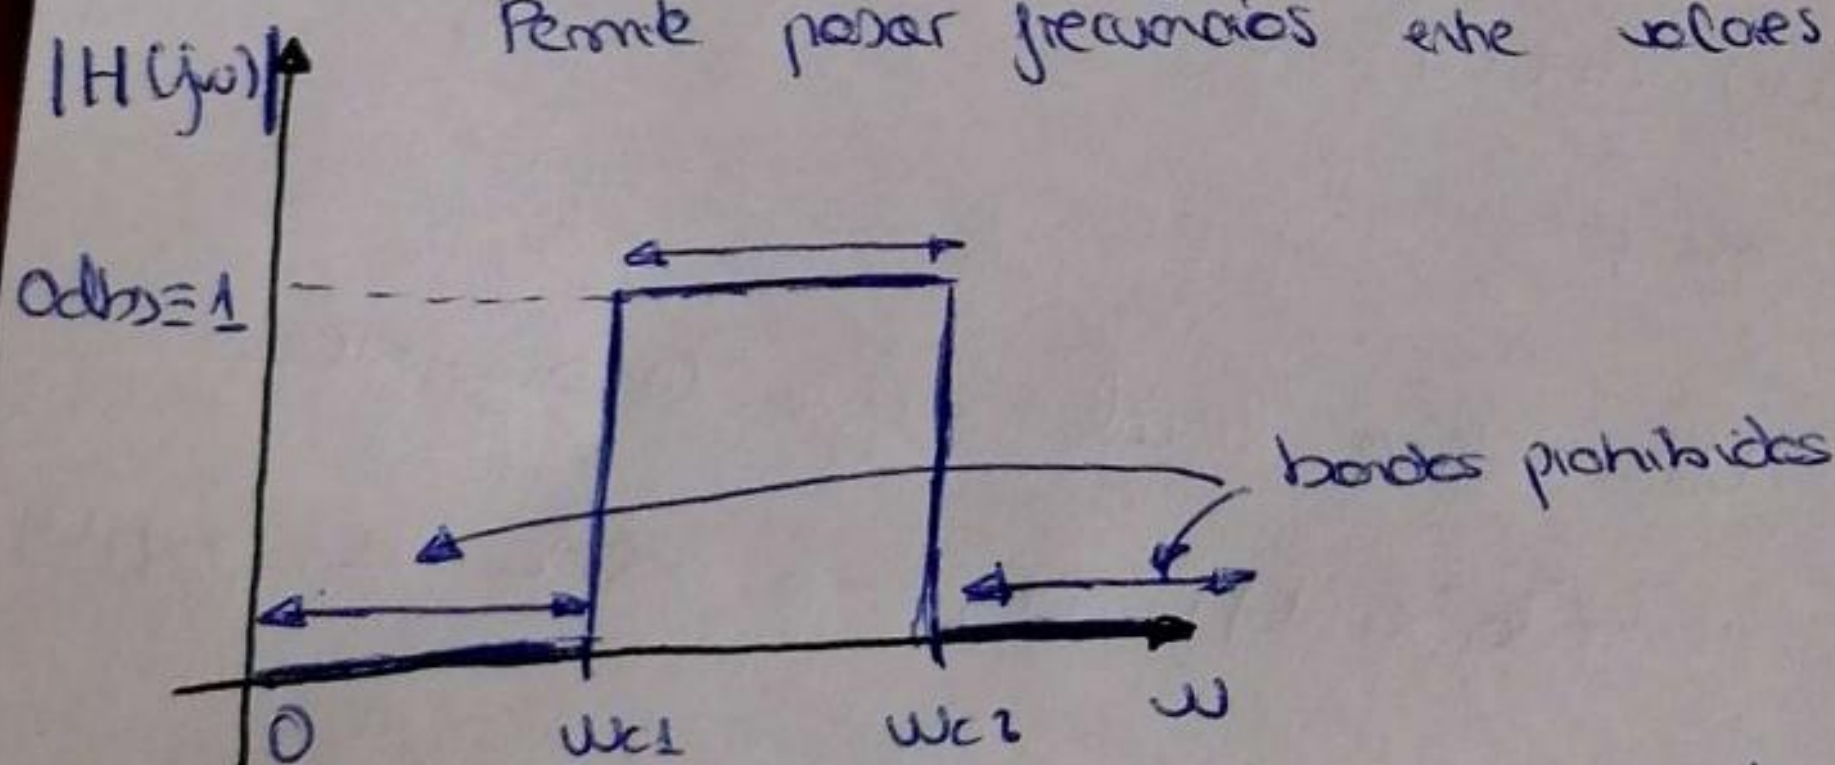 Permite pasar frecuencias entre valores
|H(jω)|
0dbs≡1
bandas prohibidas
0 ωc1 ωc2 ω